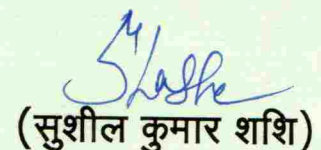 (सुशील कुमार शशि)